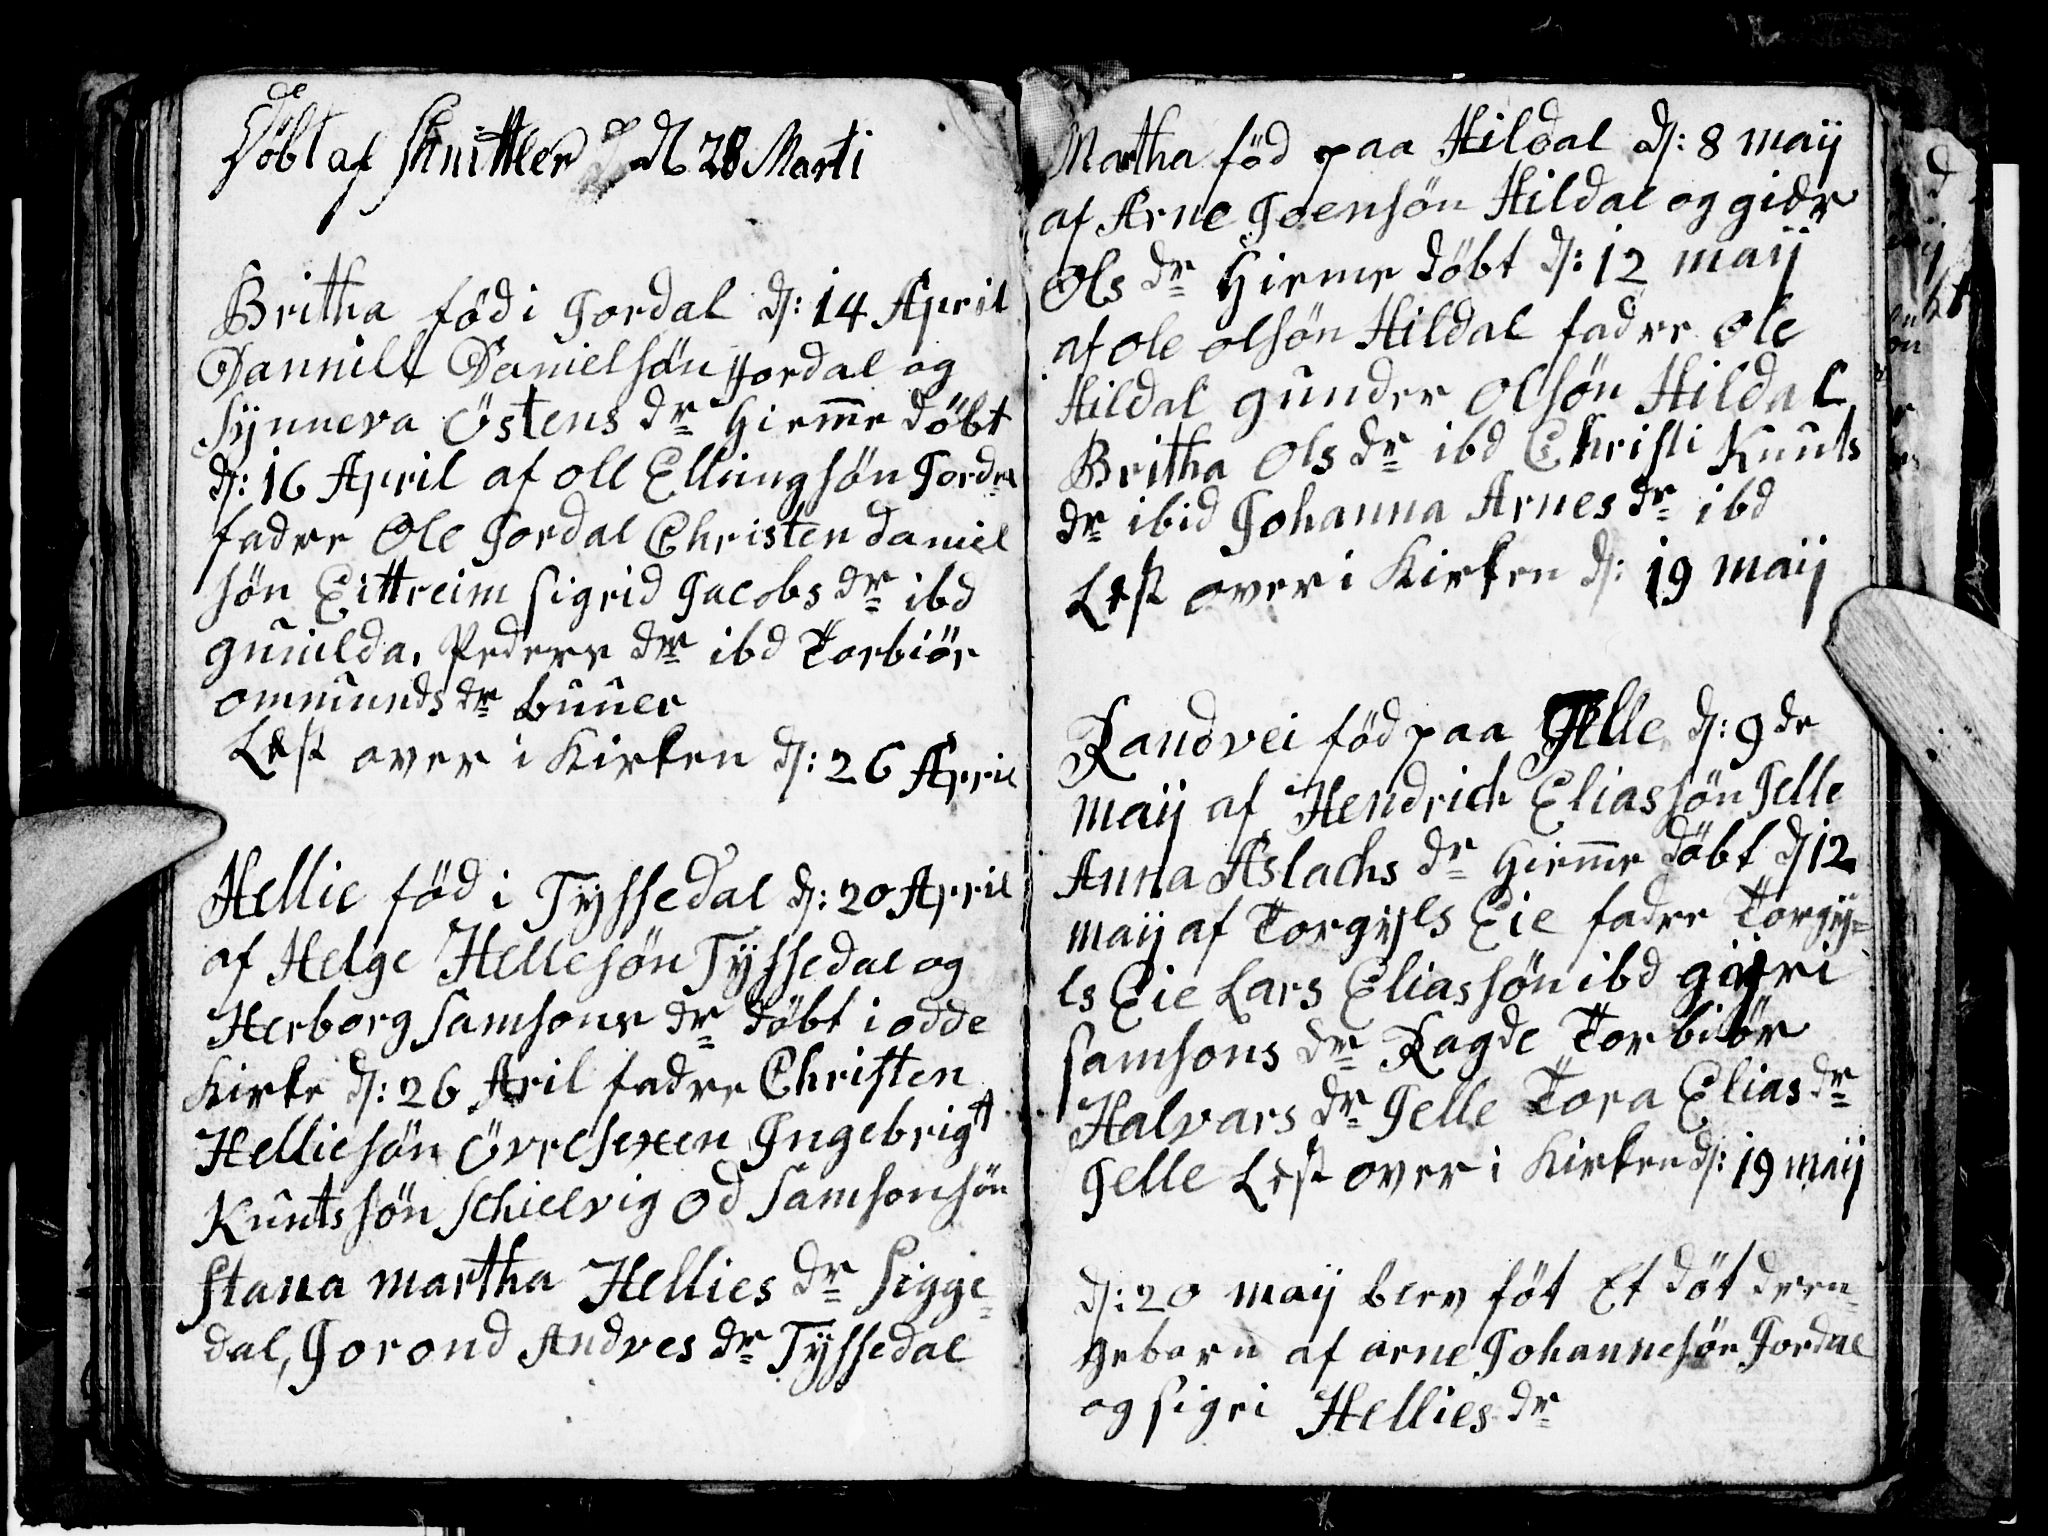 Döbt af Schnittler d: 28 Marti
Britha föd i Jordal d: 14 April
Dannill Danielsön Jordal og
Synneva Östens dr hiemme döbt
d: 16 April af oll Ellingsön Jordal
fadre Ole Jordal Christen daniel
sön Eittreim sigrid Jacobs dr ibd
gunilda, Peders dr ibd Torbiör
ommunds dr buuer
Lest over i Kirken d: 26 April
Hellie föd i Tyssedal d: 20 April
af Helge Hellesön Tyssedal og
Herborg Samsons dr döbt i odde
Kirke d: 26 Aril fadre Christen
Helliesön Övresexen Ingebrigt
Kuntssön Schielvig Od Samsonsön
Stana martha Hellies dr Sigge-
dal, Gorond Andres dr Tyssedal
Martha föd paa Hildal d: 8 maij
af Arne Joensön Hildal og gidr
Ols dr Hieme döbt d: 12 maij
af ole olsön Hildal fadre ole
Hildal gunder olsön Hildal
Britha Ols dr ibd Christi Kunts
dr ibid Johanna Arnes dr ibd
Lest over i Kirken d: 19 maij
Randvei föd paa Jelle d: 9de
maij af Hendrich Eliassön Jelle
Anna Aslachs dr Hiemme döbt d 12
maij af Torgijls Eie fadre Torgij-
ls Eie Lars Eliassön ibd gijri
samsons dr Ragde Torbiör
Halvars dr Jelle Tora Elias dr
Jelle Lest over i Kirken d: 19 maij
d: 20 maij blev föt Et döt dren-
gebarn af arne Johannesön Jordal
og sigri Hellies dr